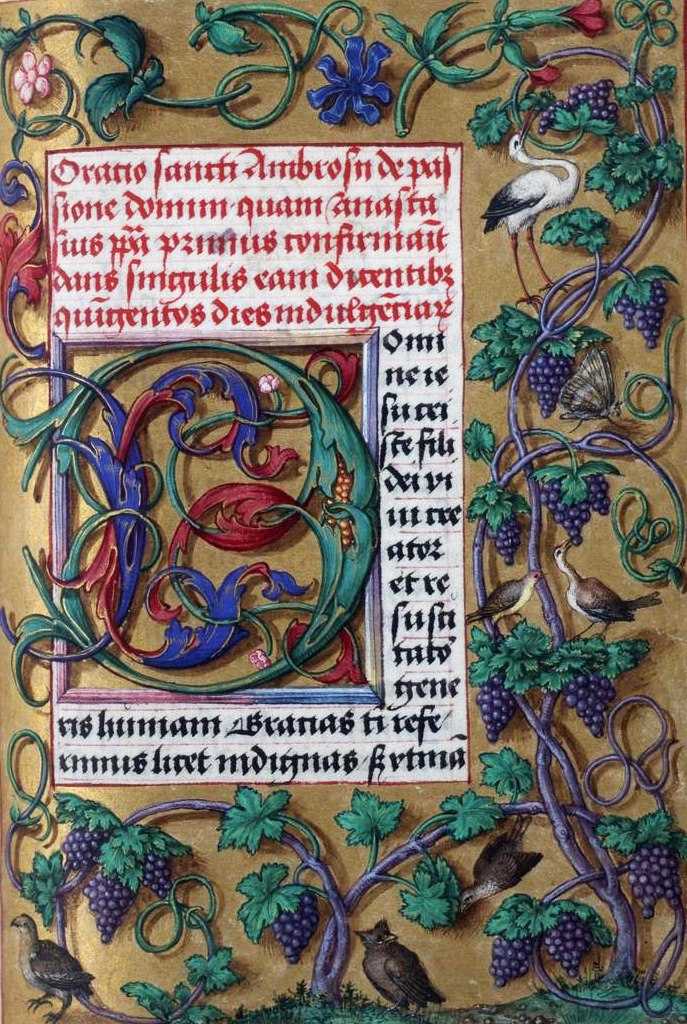 Oratio sancti Ambrosii de pas
sione domini quam Anasta
sius papa primus confirmauit
dans singulis eam dicentibꝫ
quingentos dies indulgētiaꝝ
Domi
ne ie
su cri
ste fili
dei vi
ui cre
ator
et re
suscitatō
gene
ris humani Gracias ti refe
rimus licet indignas